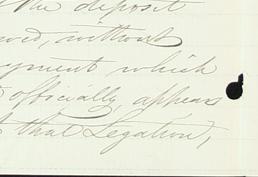 the deposit
without
yment which
officially, appears
that Legation,